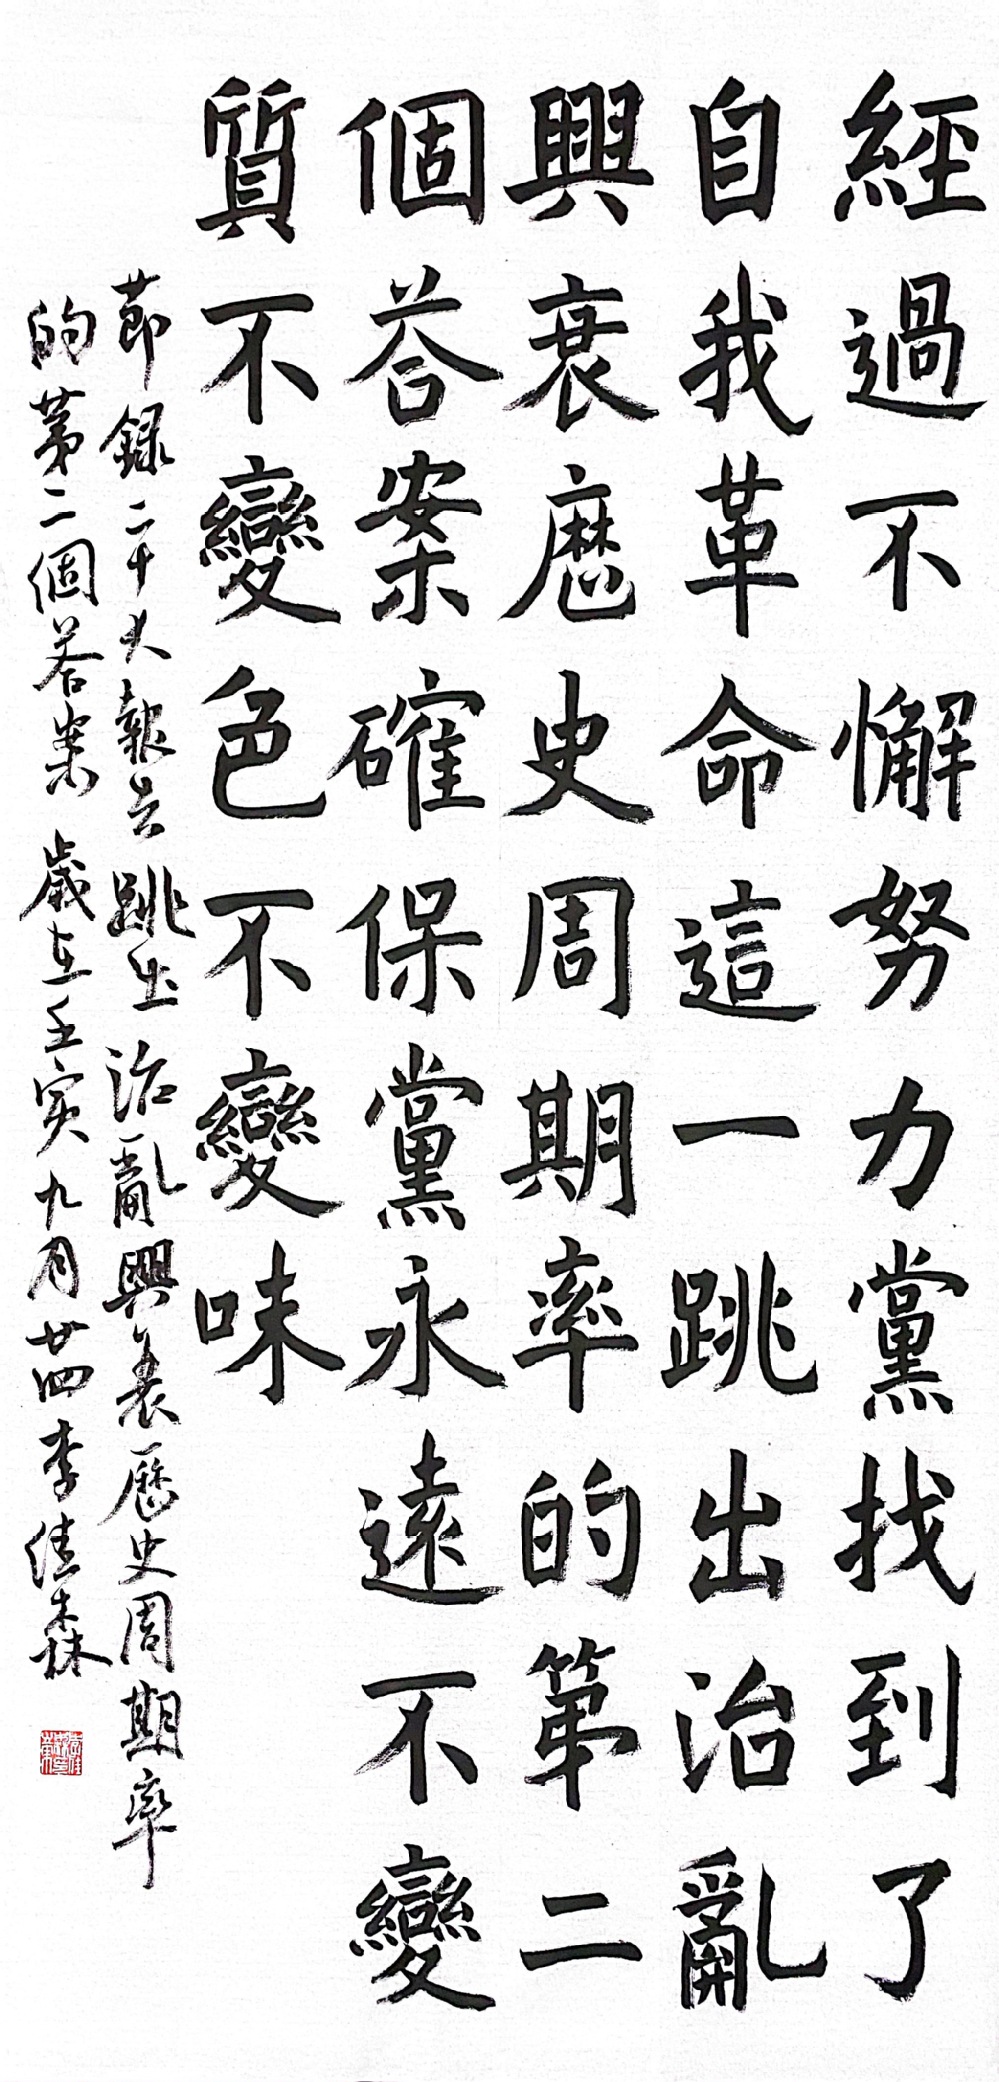 經過不懈努力黨找到了
自我革命這一跳出治亂
興衰歷史周期率的第二
個答案確保黨永遠不變
質不變色不變味
節錄二十大報告跳出治亂興衰歷史周期率
的第二個答案 歲在壬寅九月廿四李佳森